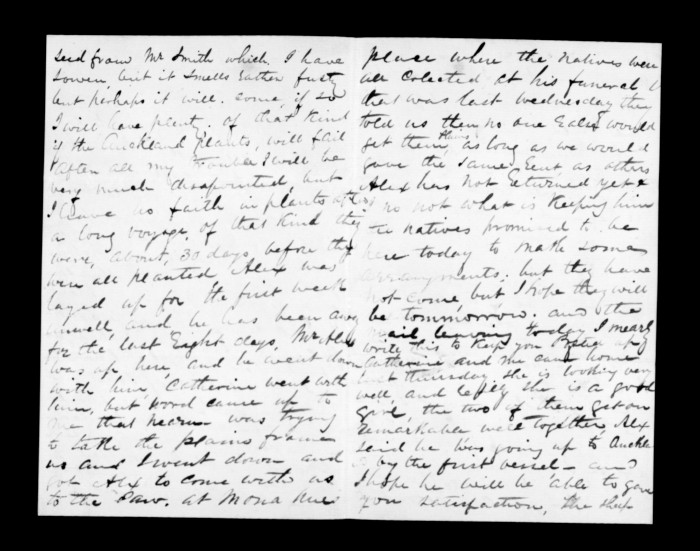 seed from Mr Smith which I have
sowen but it smells rather fusty
but perhaps it will come, if so
I will have plenty of that kind
if the Auckland plants, will fail
after all my trouble I will be
very much disapointed, but
I have no faith in plants after
a long voyage, of that kind they
were, about, 30 days, before they
were all planted Alex was
layed up for the first week
unwell, and he has been away
for the last Eight days, Mr
was up here, and he went down
with him, Catherine went with
him, but word came up to
me that was trying
to take the plains from
us and I went down and
got Alex to come with us
to the Paw. at
place where the natives were
all Colected at his funeral
that was last Wednesday they
told us then no one Ealse would
get them plains as long as we would
gave the same Rent as others
Alex has not returned yet &
I no not what is keeping him
The natives promised to be
here today to make some
arrangements. but they have
not come but I hope they will
be tommorrow. and the
mail leaving today I mearly
write this to keep you
Catherine and me came home
last thursday she is looking very
well, and she is a good
girl, the two of them get on
remarkable well together, Alex
said he was going up to Auckla
by the first vessel – and
I hope he will be able to gave
you satisfaction, The sheep